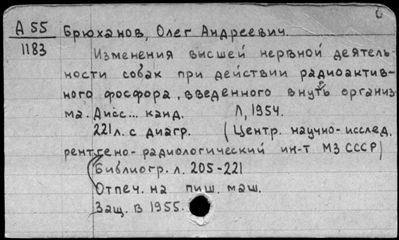 А 55 Брюханов, Олег Андреевич.
1183 Изменения высшей нервной деятель-
ности собак при действии радиоактив-
ного фосфора, введенного внутрь организ-
ма. Дисс... канд. Л, 1954.
221 л. с диагр. (Центр. научно-исслед.
рентгено-радиологический ин-т МЗ СССР)
Библиогр. л. 205-221
Отпеч. на пиш. маш.
Защ. в 1955.